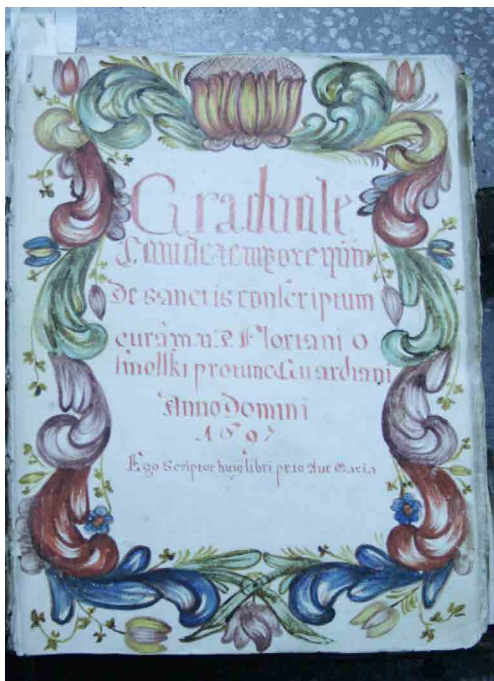 Graduale
Tam de tempore quam
de sanctis conscriptum
cura m. v. P. Floriani O
smolski protunc Guardiani
Anno Domini
1697
Ego Scriptor huius libri peto Aue Maria